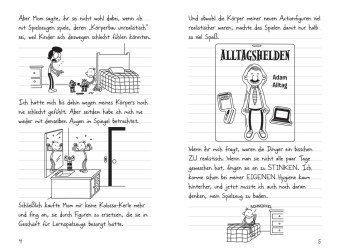 Aber Mom sagte, ihr sei nicht wohl dabei, wenn ich
mit Spielzeugen spiele, deren „Körperbau unrealistisch“
sei, weil Kinder sich deswegen schlecht fühlen könnten.
Ich hatte mich bis dahin wegen meines Körpers noch
nie schlecht gefühlt. Aber seitdem habe ich mich nie
wieder mit denselben Augen im Spiegel betrachtet.
Schließlich kaufte Mom mir keine Koloss-Kerle mehr
und fing an, sie durch Figuren zu ersetzen, die sie im
Geschäft für Lernspielzeuge besorgt hatte.
4
Und obwohl die Körper meiner neuen Actionfiguren viel
realistischer waren, machte das Spielen damit nur halb
so viel Spaß.
ALLTAGSHELDEN
Adam
Alltag
Wenn ihr mich fragt, waren die Dinger ein bisschen
ZU realistisch. Wenn man sie nicht alle paar Tage
gewaschen hat, fingen sie an zu STINKEN. Ich
komme schon bei meiner EIGENEN Hygiene kaum
hinterher, und jetzt musste ich auch noch daran
denken, mein Spielzeug zu baden.
5